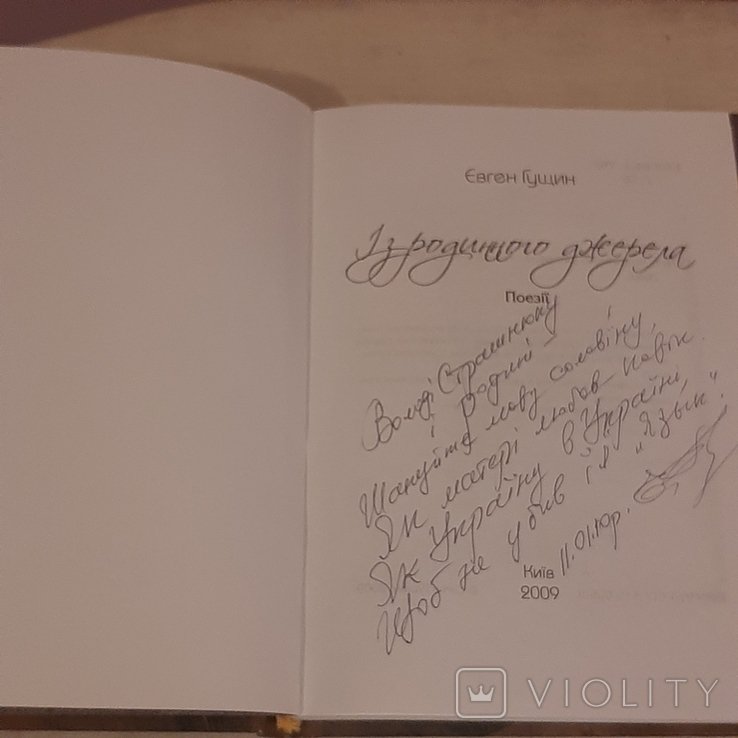 Євген Гущин
Із родинного джерела
Поезії
Володі Страшнюку
і родині –
Шануйте мову солов'їну,
Як матері любов навік.
Як Україну в Україні,
Щоб не убив її "язык".
11.01.10р.
Київ
2009
VIOLITY